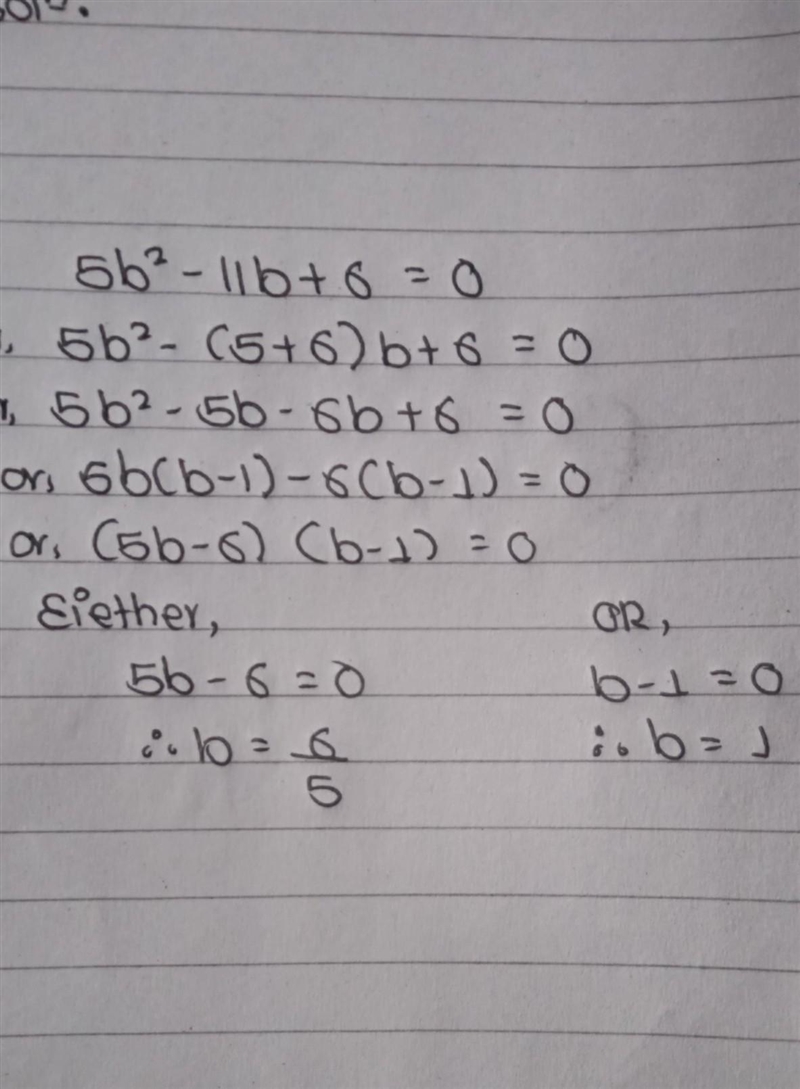 5b² - 11b + 6 = 0
, 5b² - (5+6)b + 6 = 0
r, 5b² - 5b - 6b + 6 = 0
or, 5b(b-1) - 6(b-1) = 0
or, (5b-6) (b-1) = 0
Eiether, OR,
5b - 6 = 0 b-1 = 0
∴ b = 6/5 ∴ b = 1